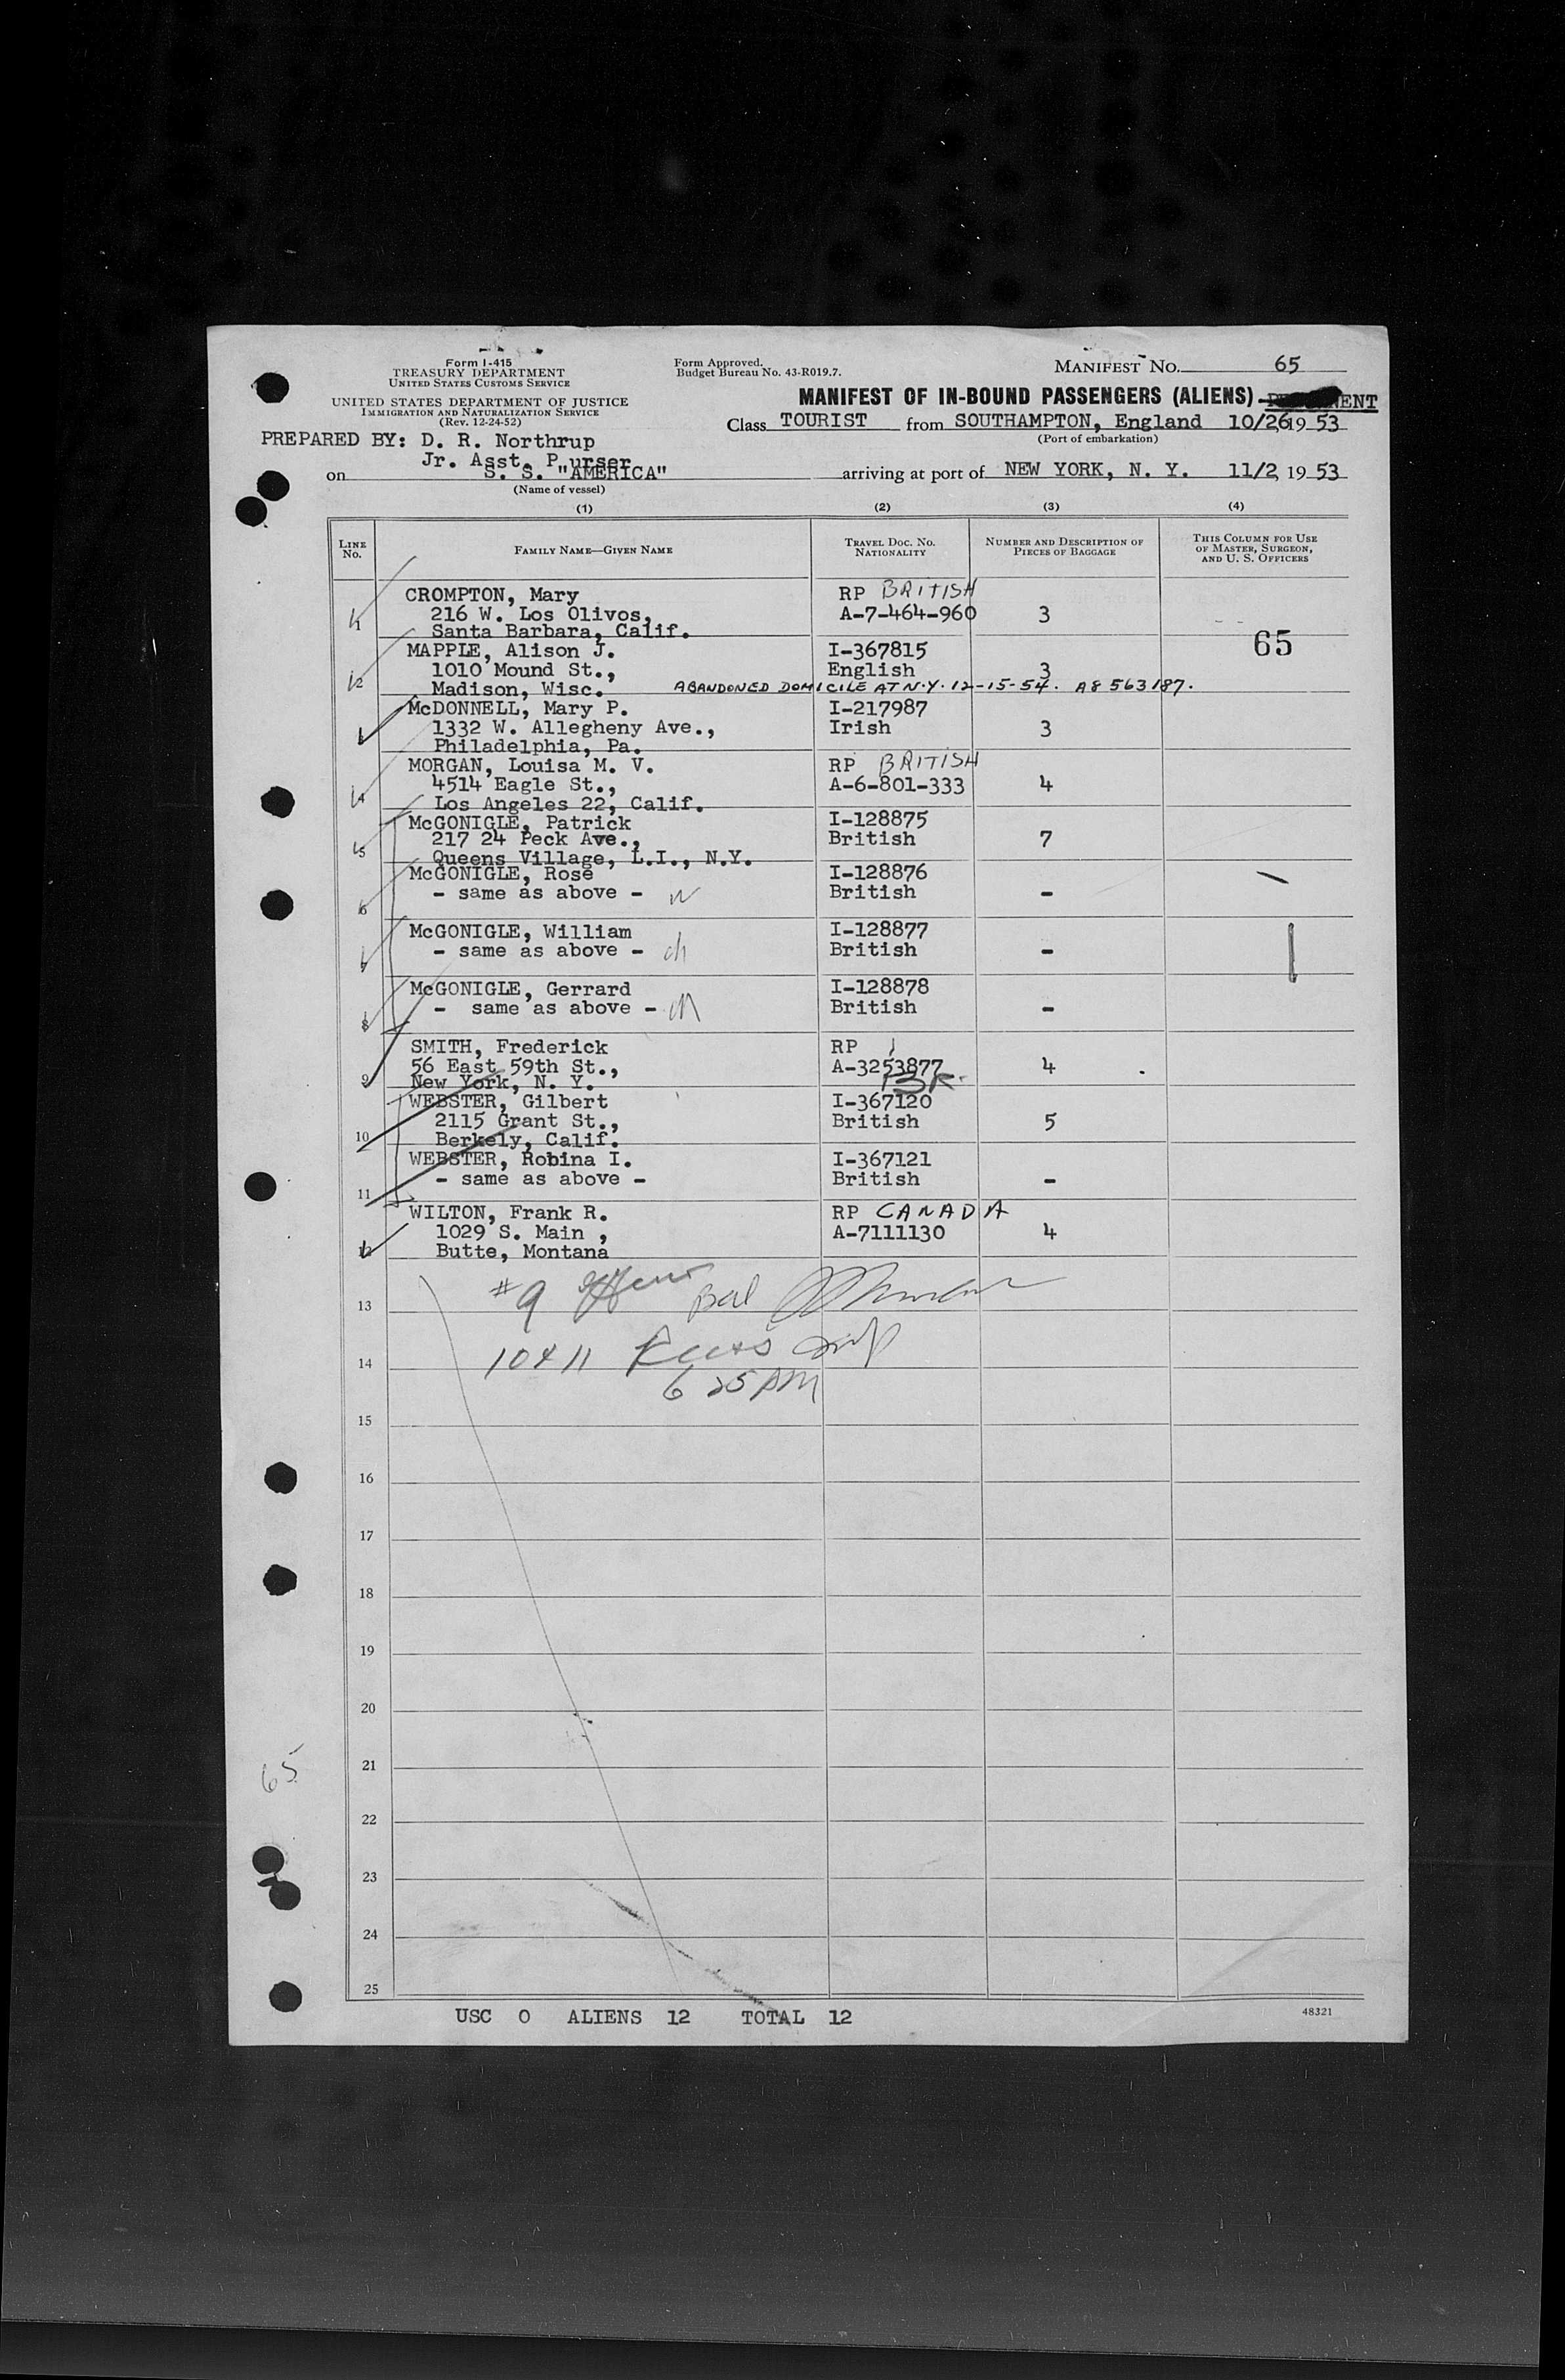 Form I-415
TREASURY DEPARTMENT
UNITED STATES CUSTOMS SERVICE
UNITED STATES DEPARTMENT OF JUSTICE
IMMIGRATION AND NATURALIZATION SERVICE
(Rev. 12-24-52)
Form Approved.
Budget Bureau No. 43-R019.7.
MANIFEST NO. 65
MANIFEST OF IN-BOUND PASSENGERS (ALIENS)
Class TOURIST from SOUTHAMPTON, England 10/26 19 53
(Port of embarkation)
PREPARED BY: D. R. Northrup
Jr. Asst. Purser
on S. S. "AMERICA" arriving at port of NEW YORK, N. Y. 11/2, 19 53
(Name of vessel)
(1) (2) (3) (4)
LINE No. FAMILY NAME—GIVEN NAME TRAVEL DOC. NO. NATIONALITY NUMBER AND DESCRIPTION OF PIECES OF BAGGAGE THIS COLUMN FOR USE OF MASTER, SURGEON, AND U. S. OFFICERS
CROMPTON, Mary RP BRITISH
1 216 W. Los Olivos, A-7-464-960 3
Santa Barbara, Calif.
65
MAPPLE, Alison J. I-367815
2 1010 Mound St., English 3
Madison, Wisc. ABANDONED DOMICILE AT N.Y. 12-15-54. A8 563187.
McDONNELL, Mary P. I-217987
1332 W. Allegheny Ave., Irish 3
Philadelphia, Pa.
MORGAN, Louisa M. V. RP BRITISH
4 4514 Eagle St., A-6-801-333 4
Los Angeles 22, Calif.
McGONIGLE, Patrick I-128875
5 217 24 Peck Ave., British 7
Queens Village, L.I., N.Y.
McGONIGLE, Rose I-128876
6 - same as above - British -
McGONIGLE, William I-128877
7 - same as above - ch British -
McGONIGLE, Gerrard I-128878
8 - same as above - ch British -
SMITH, Frederick RP
9 56 East 59th St., A-3253877 4
New York, N. Y. BR.
WEBSTER, Gilbert I-367120
10 2115 Grant St., British 5
Berkely, Calif.
WEBSTER, Robina I. I-367121
11 - same as above - British -
WILTON, Frank R. RP CANADA
12 1029 S. Main , A-7111130 4
Butte, Montana
#9
13
10 & 11
14
6 25 PM
15
16
17
18
19
20
21
65
22
23
24
25
USC 0 ALIENS 12 TOTAL 12
48321